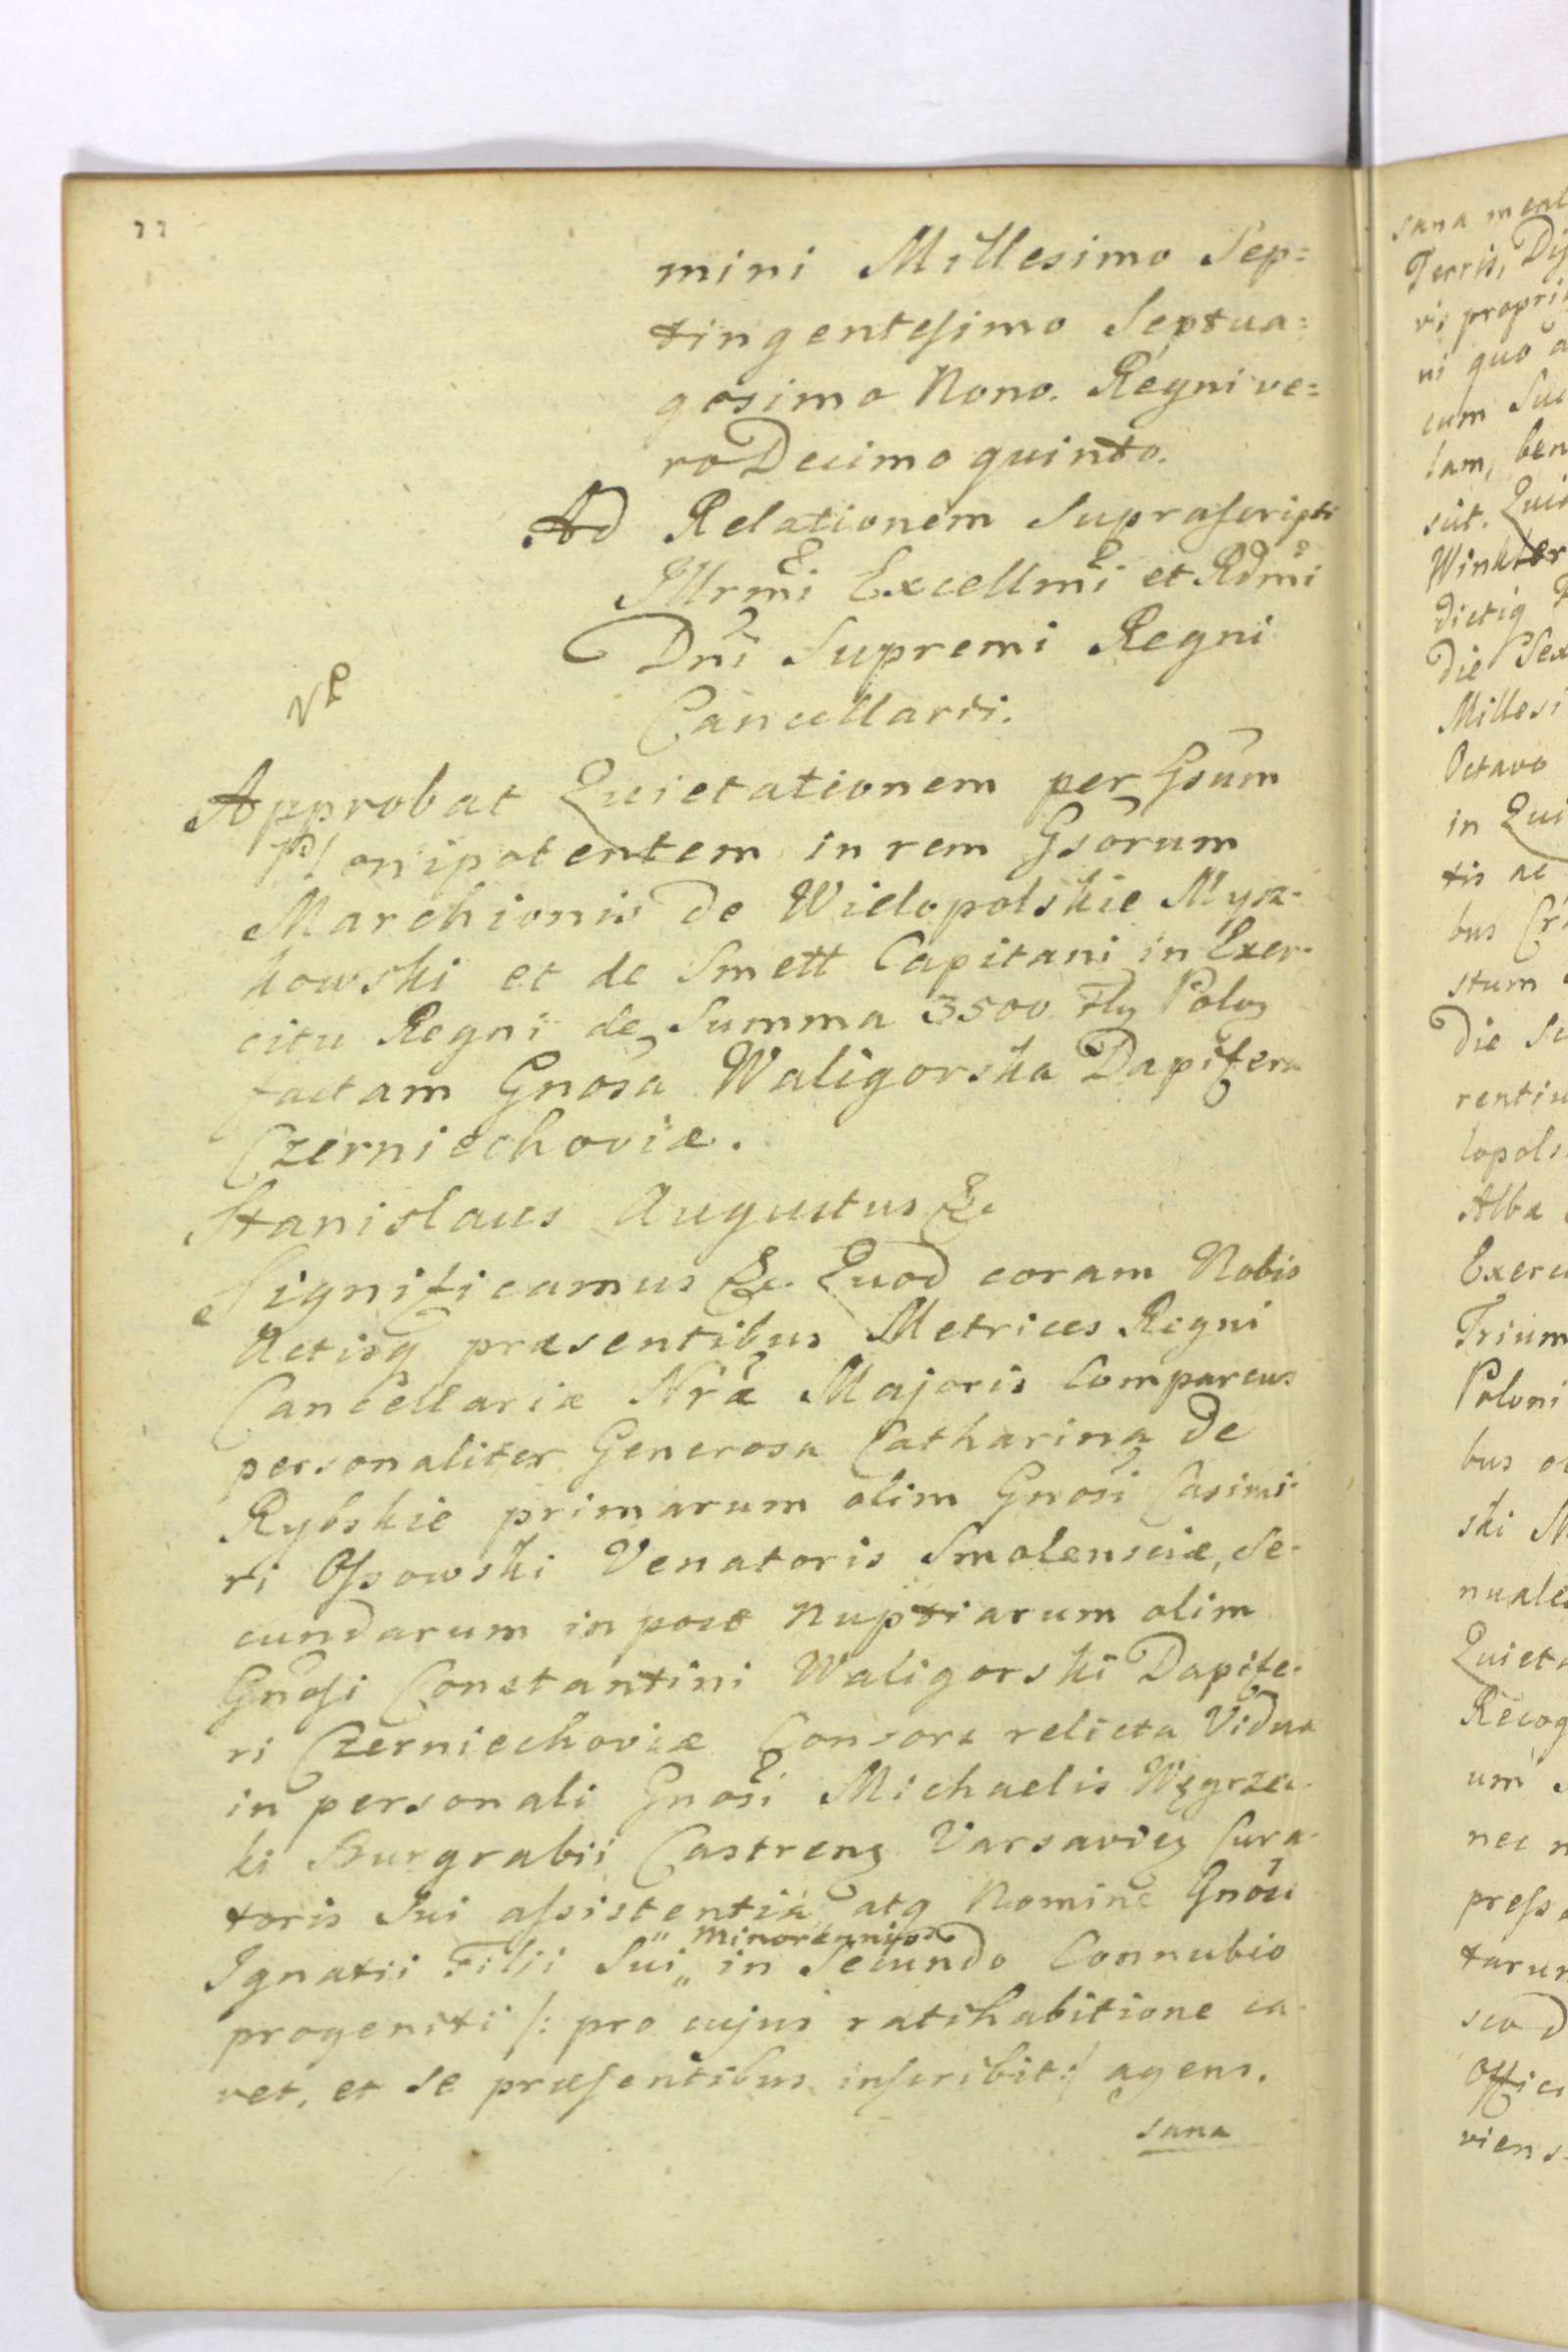 22
mini Millesimo Sep=
tingentesimo Septua=
gesimo Nono. Regni ve=
ro Decimo quinto.
Ad Relationem Suprascripti
Illrmi Excellmi et Rdmi
Dni Supremi Regni
Cancellarii.
Approbat Quietationem per Gsum
Plenipotentem in rem Gsorum
Marchionis de Wielopolskie Mysz-
kowski et de Smett Capitani in Exer-
citu Regni de Summa 3500 Flg Polog
factam Gnosa Waligorska Dapifera
Czerniechoviæ.
Stanislaus Augustus &c
Significamus &c. Quod coram Nobis
Actisq præsentibus Metrices Regni
Cancellariæ Nræ Majoris Comparens
personaliter Generosa Catharina de
Rybskie primarum olim Gnosi Casimi-
ri Ossowski Venatoris Smolensciæ, Se-
cundarum in post Nuptiarum olim
Gnosi Constantini Waligorski Dapife-
ri Czerniechoviæ Consors relicta Vidua
in personali Gnosi Michaelis Węgrzec-
ki Burgrabii Castreng Varsavieg Cura-
toris Sui assistentia atq Nomine Gnosi
Minorennis
Ignatii Filji Sui„ in Secundo Connubio
progeniti /: pro cujus ratihabitione ca-
vet, et se præsentibus inscribit :/ agens.
sana
sana ment
Terris,
vis propri
ni quo a
cum Suc
lam, ben
sit.
Winkler
dictiq
Die Sex
Millesi
Octavo
in Qui
tis ac
bus
stum
Die
rentiu
lopols
Alba
Exerci
Trium
Poloni
bus
ski
nuale
Quieta
Recog
um
nec
press
tarum
Offici
viens